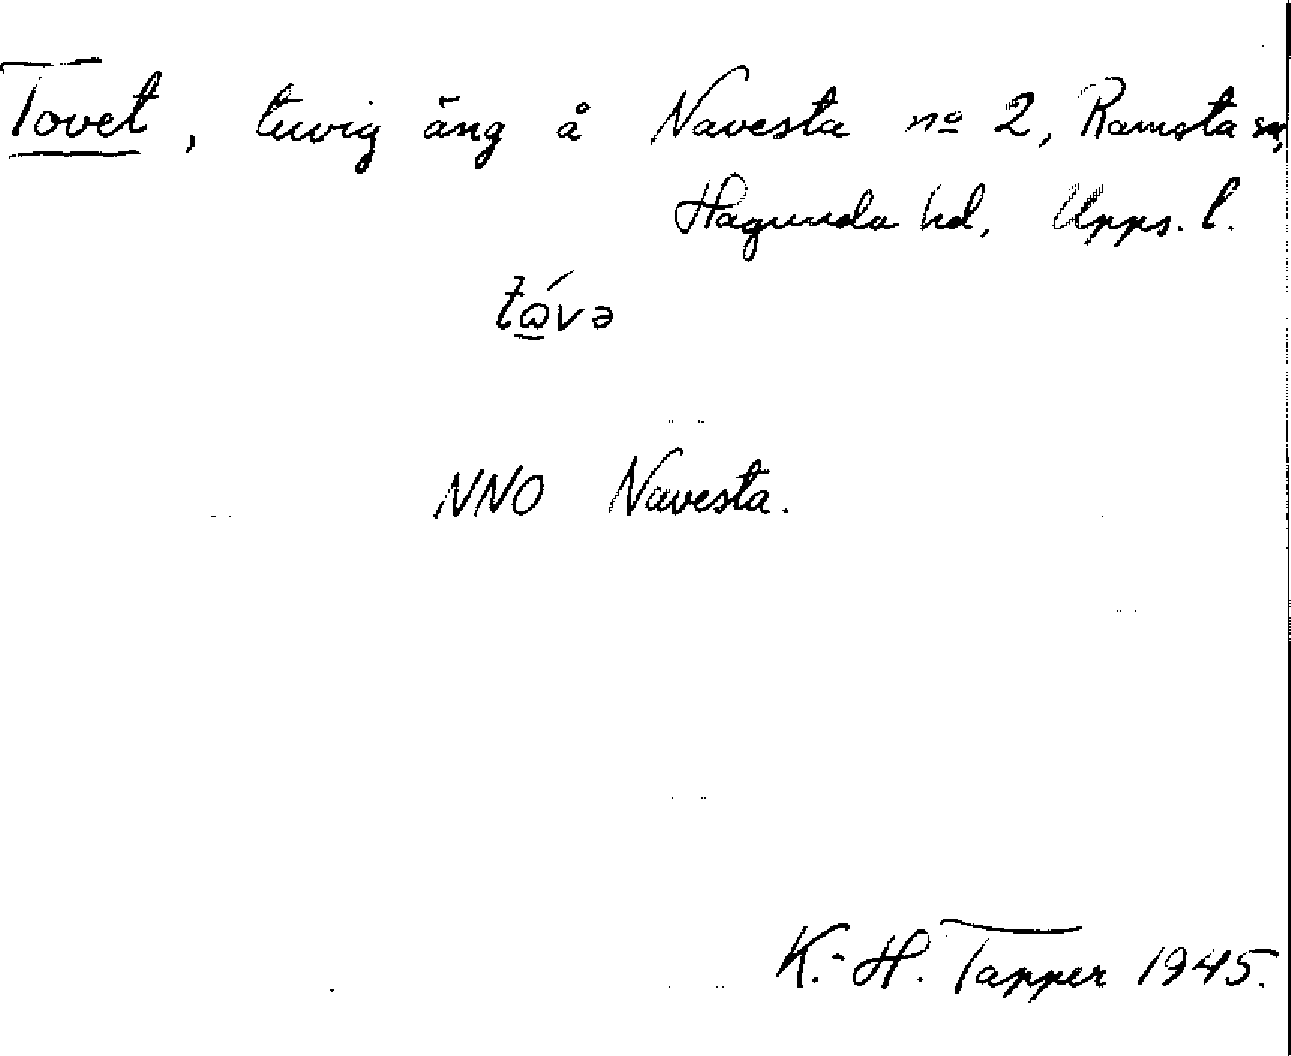 Tovet, tuvig äng å Navesta nº 2, Ramsta sn,
Hagunda hd, Upps. l.
tώ̲və
NNO Navesta.
K.-H. Tapper 1945.